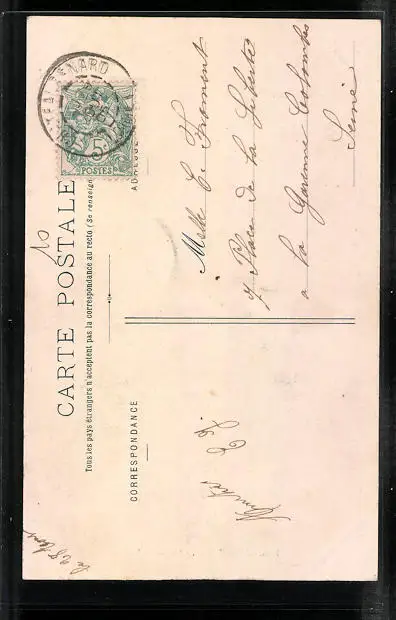 CARTE POSTALE
Tous les pays étrangers n'acceptent pas la correspondance au recto (Se renseigner
CORRESPONDANCE
ADRESSE
POSTES
5
10
Melle C. Froment
7 Place de la Liberté
a la Garenne Colombes
Seine